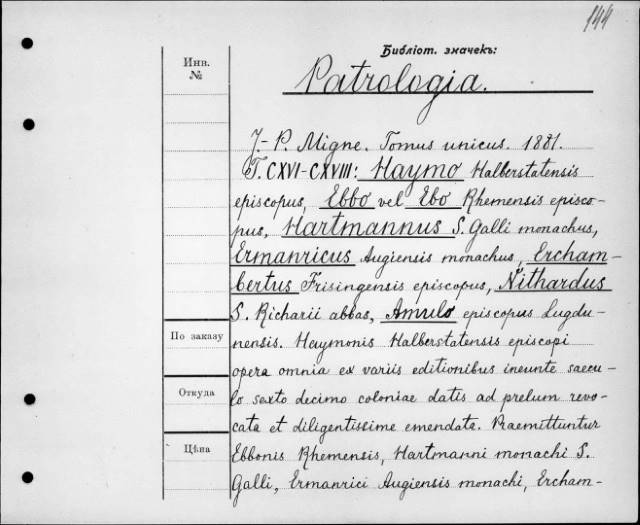 144
Библіот. значекъ:
Инв.
№
Patrologia.
J.-P. Migne. Tomus unicus. 1881.
T. CXVI-CXVIII: Haymo Halberstatensis
episcopus, Ebbo vel Ebo Rhemensis episco-
pus, Hartmannus S. Galli monachus,
Ermanricus Augiensis monachus, Ercham-
bertus Frisingensis episcopus, Nithardus
S. Richarii abbas, Amulo episcopus Lugdu-
nensis. Haymonis Halberstatensis episcopi
opera omnia ex variis editionibus ineunte saecu-
lo sexto decimo coloniae datis ad prelum revo-
cata et diligentissime emendata. Praemittuntur
Ebbonis Rhemensis, Hartmanni monachi S.
Galli, Ermanrici Augiensis monachi, Ercham-
По заказу
Откуда
Цѣна